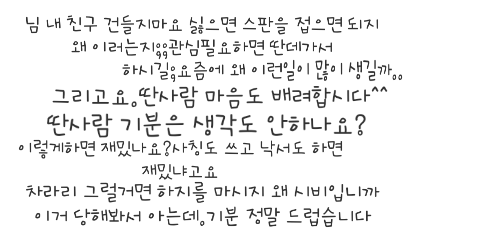 님 내 친구 건들지마요 싫으면 스판을 접으면 되지
왜 이러는지;;관심필요하면 딴데가서
하시길;요즘에 왜 이런일이 많이 생길까..
그리고요.딴사람 마음도 배려합시다^^
딴사람 기분은 생각도 안하나요?
이렇게하면 재밌나요?사칭도 쓰고 낙서도 하면
재밌냐고요
차라리 그럴거면 하지를 마시지 왜 시비입니까
이거 당해봐서 아는데.기분 정말 드럽습니다